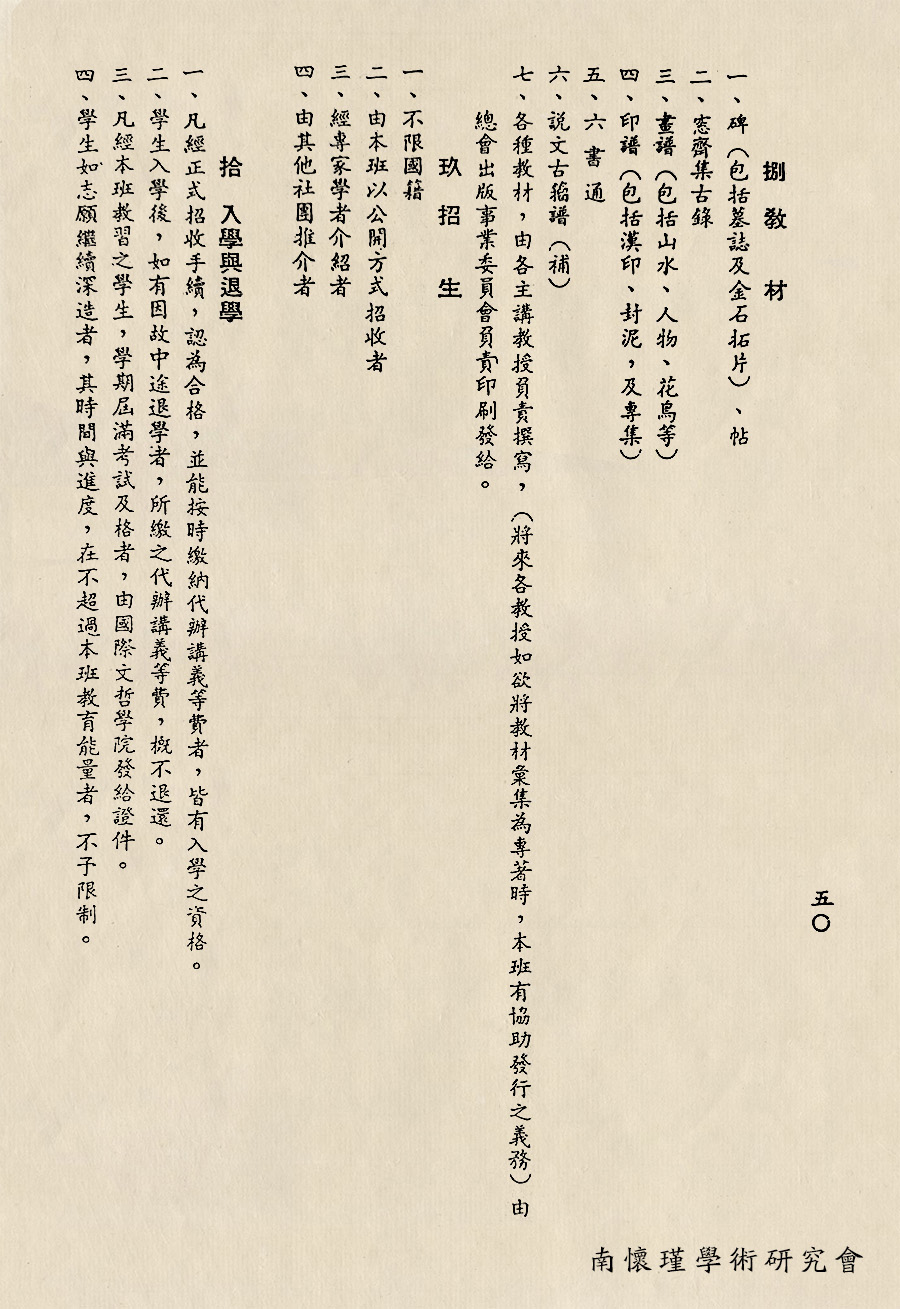 五〇
捌 敎 材
一、碑（包括墓誌及金石拓片）、帖
二、窓齊集古錄
三、畫譜（包括山水、人物、花鳥等）
四、印譜（包括漢印、封泥，及專集）
五、六書通
六、説文古籀譜（補）
七、各種教材，由各主講教授負責撰寫，（將來各教授如欲將教材彙集為專著時，本班有協助發行之義務）由
總會出版事業委員會負責印刷發給。
玖 招 生
一、不限國籍
二、由本班以公開方式招收者
三、經專家學者介紹者
四、由其他社團推介者
拾 入學與退學
一、凡經正式招收手續，認為合格，並能按時繳納代辦講義等費者，皆有入學之資格。
二、學生入學後，如有因故中途退學者，所繳之代辦講義等費，概不退還。
三、凡經本班教習之學生，學期屆滿考試及格者，由國際文哲學院發給證件。
四、學生如志願繼續深造者，其時間與進度，在不超過本班教育能量者，不予限制。
南懷瑾學術研究會